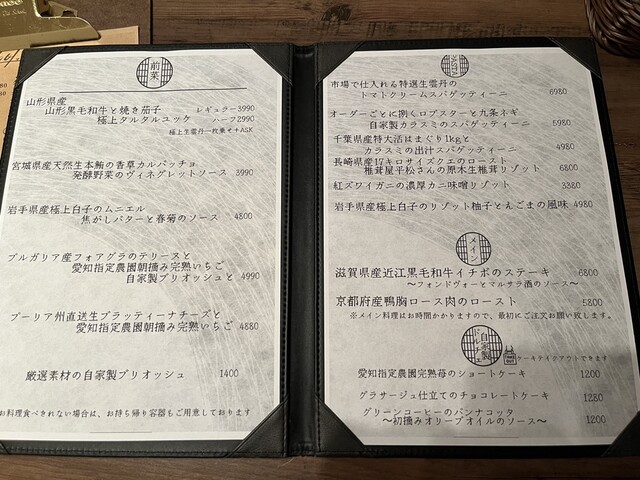 前菜
山形県産
山形黒毛和牛と焼き茄子 レギュラー3990
極上タルタルユッケ ハーフ2990
極上生雲丹一枚乗せ+ASK
宮城県産天然生本鮪の香草カルパッチョ
発酵野菜のヴィネグレットソース 3990
岩手県産極上白子のムニエル
焦がしバターと春菊のソース 4800
ブルガリア産フォアグラのテリーヌと
愛知指定農園朝摘み完熟いちご
自家製ブリオッシュと 4990
プーリア州直送生ブラッティーナチーズと
愛知指定農園朝摘み完熟いちご 4880
厳選素材の自家製ブリオッシュ 1400
お料理食べきれない場合は、お持ち帰り容器もご用意しております
PASTA
市場で仕入れる特選生雲丹の
トマトクリームスパゲッティーニ 6980
オーダーごとに捌くロブスターと九条ネギ
自家製カラスミのスパゲッティーニ 5980
千葉県産特大活はまぐり1kgと
カラスミの出汁スパゲッティーニ 4980
長崎県産17キロサイズクエのロースト
椎茸屋平松さんの原木生椎茸リゾット 6800
紅ズワイガニの濃厚カニ味噌リゾット 3380
岩手県産極上白子のリゾット柚子とえごまの風味 4980
メイン
滋賀県産近江黒毛和牛イチボのステーキ 6800
～フォンドヴォーとマルサラ酒のソース～
京都府産鴨胸ロース肉のロースト 5800
※メイン料理はお時間かかりますので、最初にご注文お願い致します。
自家製
ドルチェ
ケーキテイクアウトできます
愛知指定農園完熟苺のショートケーキ 1200
グラサージュ仕立てのチョコレートケーキ 1280
グリーンコーヒーのパンナコッタ
～初摘みオリーブオイルのソース～ 1200